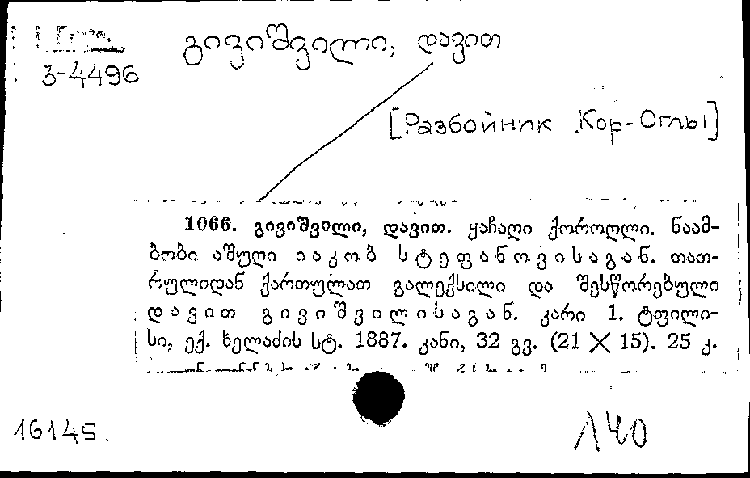 3-4496
გივიშვილი, დავით
[Разбойник Кор-Оглы]
1066. გივიშვილი, დავით. ყაჩაღი ქოროღლი. ნაამ-
ბობი აშუღი იაკობ სტეფანოვისაგან. თათ-
რულიდან ქართულათ გალექსილი და შესწორებული
დავით გივიშვილისაგან. კარი 1. ტფილი-
სი, ექ. ხელაძის სტ. 1887. კანი, 32 გვ. (21 X 15). 25 კ.
16145
140